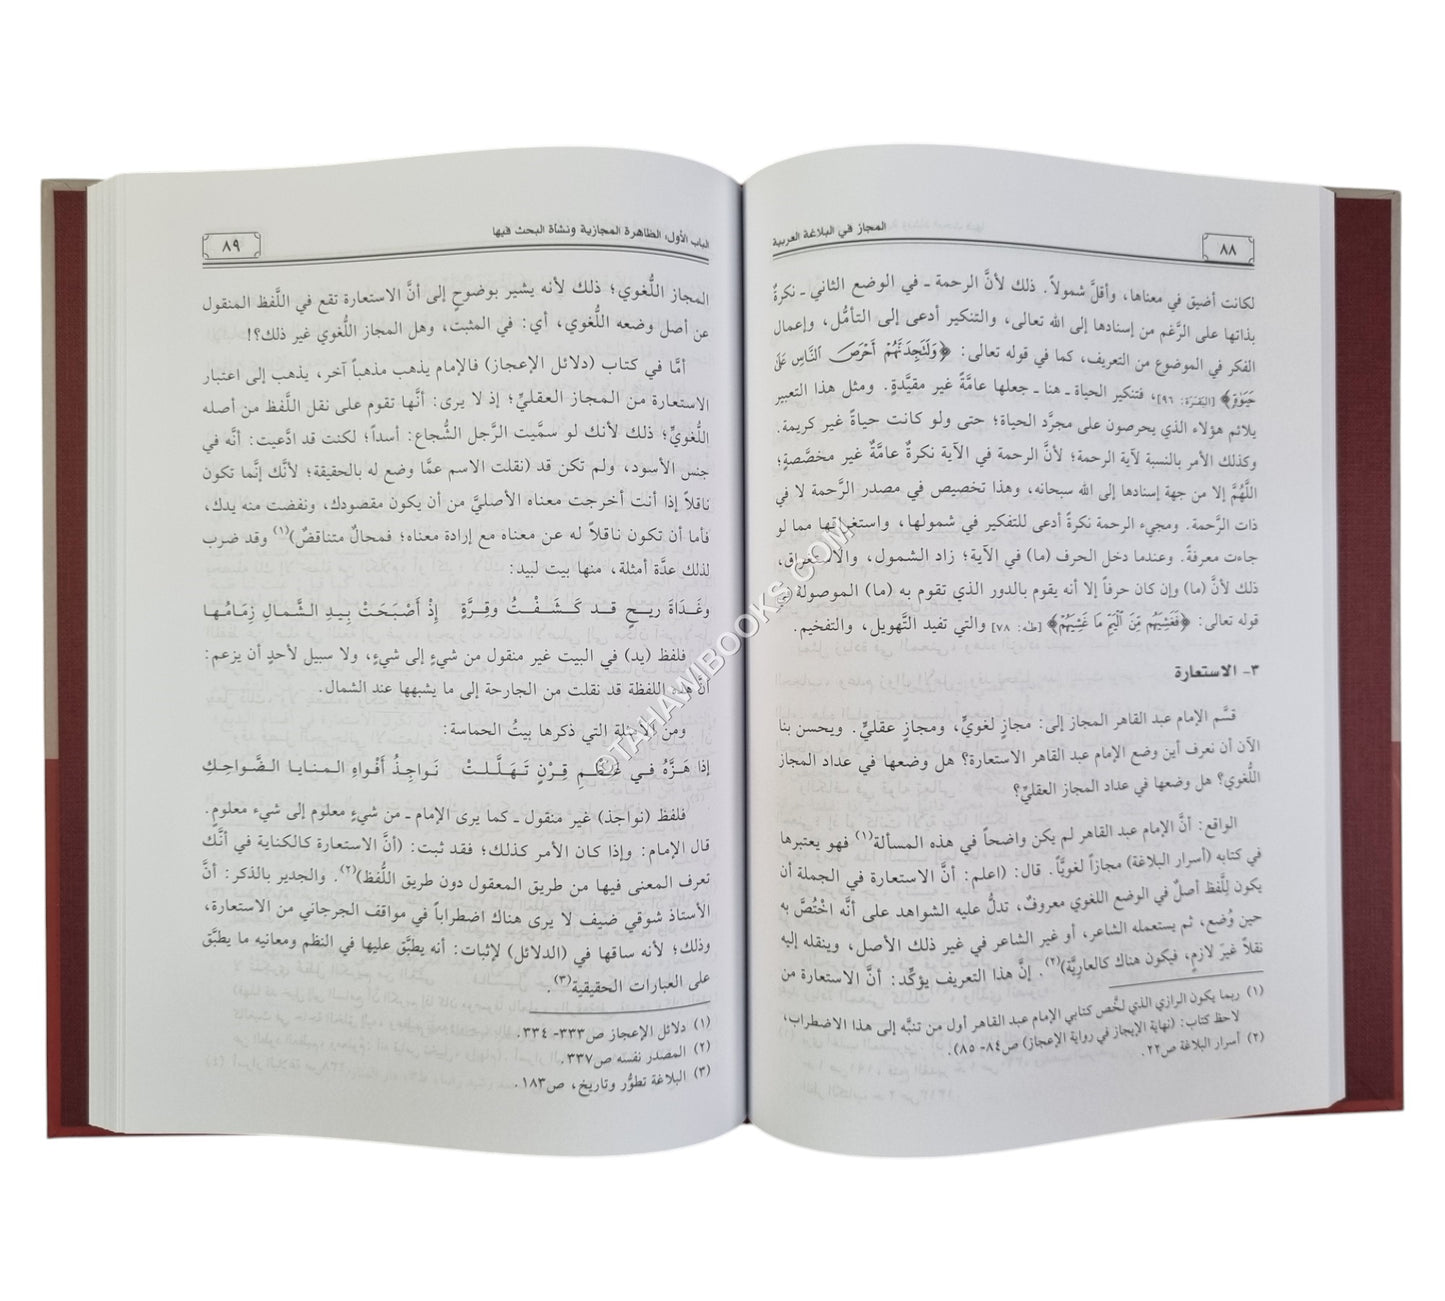 ٨٨
المجاز في البلاغة العربية
لكانت أضيق في معناها، وأقلَّ شمولاً. ذلك لأنَّ الرحمة ـ في الوضع الثاني ـ نكرةٌ
بذاتها على الرَّغم من إسنادها إلى الله تعالى، والتنكير أدعى إلى التأمُّل، وإعمال
الفكر في الموضوع من التعريف، كما في قوله تعالى: ﴿وَلَتَجِدَنَّهُمْ أَحْرَصَ النَّاسِ عَلَىٰ
حَيَوٰةٍ﴾ [البَقَرَة: ٩٦]، فتنكير الحياة ـ هنا ـ جعلها عامَّةً غير مقيَّدةٍ. ومثل هذا التعبير
يلائم هؤلاء الذي يحرصون على مجرَّد الحياة؛ حتى ولو كانت حياةً غير كريمة.
وكذلك الأمر بالنسبة لآية الرحمة؛ لأنَّ الرحمة في الآية نكرةٌ عامَّةٌ غير مخصَّصةٍ؛
اللَّهُمَّ إلا من جهة إسنادها إلى الله سبحانه، وهذا تخصيص في مصدر الرَّحمة لا في
ذات الرَّحمة. ومجيء الرحمة نكرةً أدعى للتفكير في شمولها، واستغراقها مما لو
جاءت معرفةً. وعندما دخل الحرف (ما) في الآية؛ زاد الشمول، والاستغراق،
ذلك لأنَّ (ما) وإن كان حرفاً إلا أنه يقوم بالدور الذي تقوم به (ما) الموصولة في
قوله تعالى: ﴿فَغَشِيَهُم مِّنَ الْيَمِّ مَا غَشِيَهُمْ﴾ [طه: ٧٨] والتي تفيد التَّهويل، والتفخيم.
٣- الاستعارة
قسَّم الإمام عبد القاهر المجاز إلى: مجازٍ لغويٍّ، ومجازٍ عقليٍّ. ويحسن بنا
الآن أن نعرف أين وضع الإمام عبد القاهر الاستعارة؟ هل وضعها في عداد المجاز
اللُّغوي؟ هل وضعها في عداد المجاز العقليِّ؟
الواقع: أنَّ الإمام عبد القاهر لم يكن واضحاً في هذه المسألة(١) فهو يعتبرها
في كتابه (أسرار البلاغة) مجازاً لغويَّاً. قال: (اعلم: أنَّ الاستعارة في الجملة أن
يكون لِلَّفظ أصلٌ في الوضع اللغوي معروفٌ، تدلُّ عليه الشواهد على أنَّه اخْتُصَّ به
حين وُضع، ثم يستعمله الشاعر، أو غير الشاعر في غير ذلك الأصل، وينقله إليه
نقلاً غيرَ لازمٍ، فيكون هناك كالعاريَّة)(٢). إنَّ هذا التعريف يؤكِّد: أنَّ الاستعارة من
(١) ربما يكون الرازي الذي لخَّص كتابي الإمام عبد القاهر أول من تنبَّه إلى هذا الاضطراب،
لاحظ كتاب: (نهاية الإيجاز في رواية الإعجاز) ص٨٤- ٨٥).
(٢) أسرار البلاغة ص٢٢.
الباب الأول: الظاهرة المجازية ونشأة البحث فيها
٨٩
المجاز اللُّغوي؛ ذلك لأنه يشير بوضوحٍ إلى أنَّ الاستعارة تقع في اللَّفظ المنقول
عن أصل وضعه اللُّغوي، أي: في المثبت، وهل المجاز اللُّغوي غير ذلك؟!
أمَّا في كتاب (دلائل الإعجاز) فالإمام يذهب مذهباً آخر، يذهب إلى اعتبار
الاستعارة من المجاز العقليِّ؛ إذ لا يرى: أنَّها تقوم على نقل اللَّفظ من أصله
اللُّغويِّ؛ ذلك لأنك لو سمَّيت الرَّجل الشُّجاع: أسداً؛ لكنت قد ادَّعيت: أنَّه في
جنس الأسود، ولم تكن قد (نقلت الاسم عمَّا وضع له بالحقيقة؛ لأنَّك إنَّما تكون
ناقلاً إذا أنت أخرجت معناه الأصليَّ من أن يكون مقصودك، ونفضت منه يدك،
فأما أن تكون ناقلاً له عن معناه مع إرادة معناه؛ فمحالٌ متناقضٌ)(١) وقد ضرب
لذلك عدَّة أمثلة، منها بيت لبيد:
وغَدَاةَ ريـحٍ قـد كَـشَـفْـتُ وقِـرَّةٍ إذْ أَصْبَحَتْ بِيـدِ الـشَّـمـالِ زِمَـامُـهـا
فلفظ (يد) في البيت غير منقول من شيءٍ إلى شيءٍ، ولا سبيل لأحدٍ أن يزعم:
أنَّ هذه اللفظة قد نقلت من الجارحة إلى ما يشبهها عند الشمال.
ومن الأمثلة التي ذكرها بيتُ الحماسة:
إذا هَـزَّهُ فـي عَـظْـمِ قِـرْنٍ تَـهَـلَّـلـتْ نَـواجِـذُ أَفْـواهِ الـمـنـايـا الـضَّـواحِـكِ
فلفظ (نواجذ) غير منقول ـ كما يرى الإمام ـ من شيءٍ معلوم إلى شيء معلومٍ.
قال الإمام: وإذا كان الأمر كذلك؛ فقد ثبت: (أنَّ الاستعارة كالكناية في أنَّك
تعرف المعنى فيها من طريق المعقول دون طريق اللُّفظ)(٢). والجدير بالذكر: أنَّ
الأستاذ شوقي ضيف لا يرى هناك اضطراباً في مواقف الجرجاني من الاستعارة،
وذلك؛ لأنه ساقها في (الدلائل) لإثبات: أنه يطبَّق عليها في النظم ومعانيه ما يطبَّق
على العبارات الحقيقية(٣).
(١) دلائل الإعجاز ص٣٣٣- ٣٣٤.
(٢) المصدر نفسه ص٣٣٧.
(٣) البلاغة تطوُّر وتاريخ، ص١٨٣.
©TAHAWIBOOKS.COM